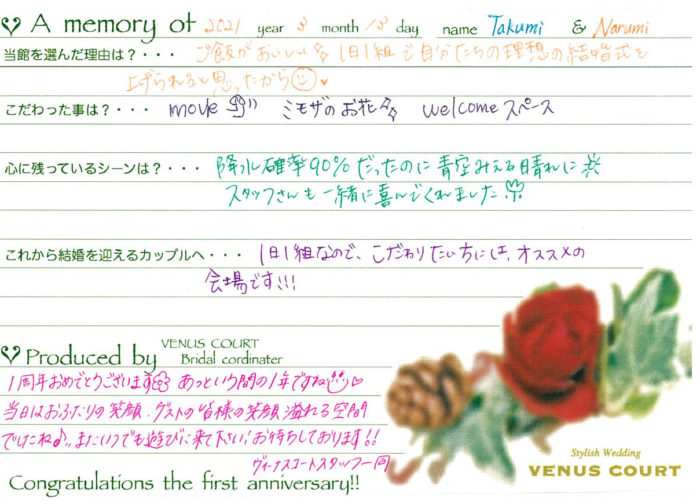 A memory of 2021 year 3 month 13 day name Takumi & Narumi
当館を選んだ理由は？・・・ ご飯がおいしい 1日1組で自分たちの理想の結婚式を
上げられると思ったから
こだわった事は？・・・ movie ミモザのお花 welcomeスペース
心に残っているシーンは？・・・ 降水確率90%だったのに青空みえる晴れに
スタッフさんも一緒に喜んでくれました
これから結婚を迎えるカップルへ・・・ 1日1組なので、こだわりたい方には、オススメの
会場です!!!
Produced by VENUS COURT Bridal cordinater
1周年おめでとうございます あっという間の1年ですね
当日はおふたりの笑顔、ゲストの皆様の笑顔溢れる空間
でしたね♪ またいつでも遊びに来て下さい！お待ちしております!!
ヴィーナスコートスタッフ一同
Congratulations the first anniversary!!
Stylish Wedding
VENUS COURT